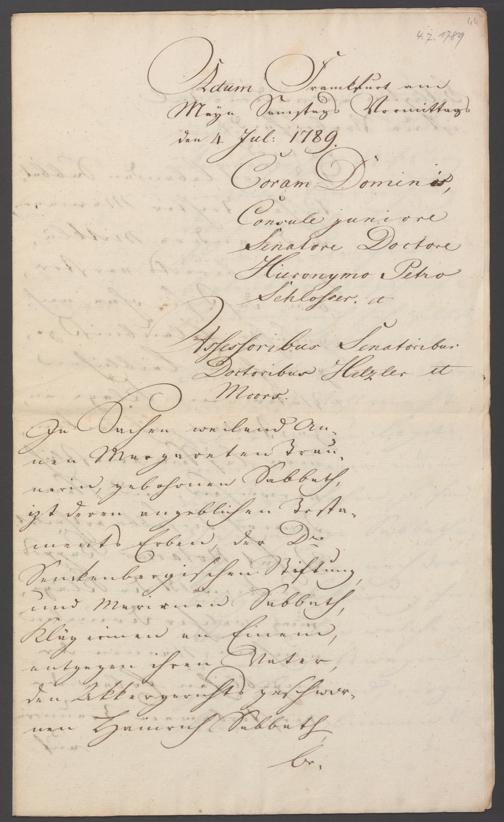 44
4.7.1789
Actum Frankfurt am
Mayn Samstags Vormittags
den 4 Jul: 1789.
Coram Dominis,
Consule juniore
Senatore Doctore
Hieronymo Petro
Schlosser. et
Assessoribus Senatoribus
Doctoribus Hetzler et
Moors.
In Sachen weiland An-
nen Margareten Braun-
nerin, gebohrnen Sabbath,
itzt deren angeblichen Testa-
ments Erben, der Dr
Senkenbergischen Stiftung,
und Mariannen Sabbath,
Klägerinnen an Einem,
entgegen ihren Vater,
den Akkergerichts geschwor-
nen Hainrich Sabbath
be-